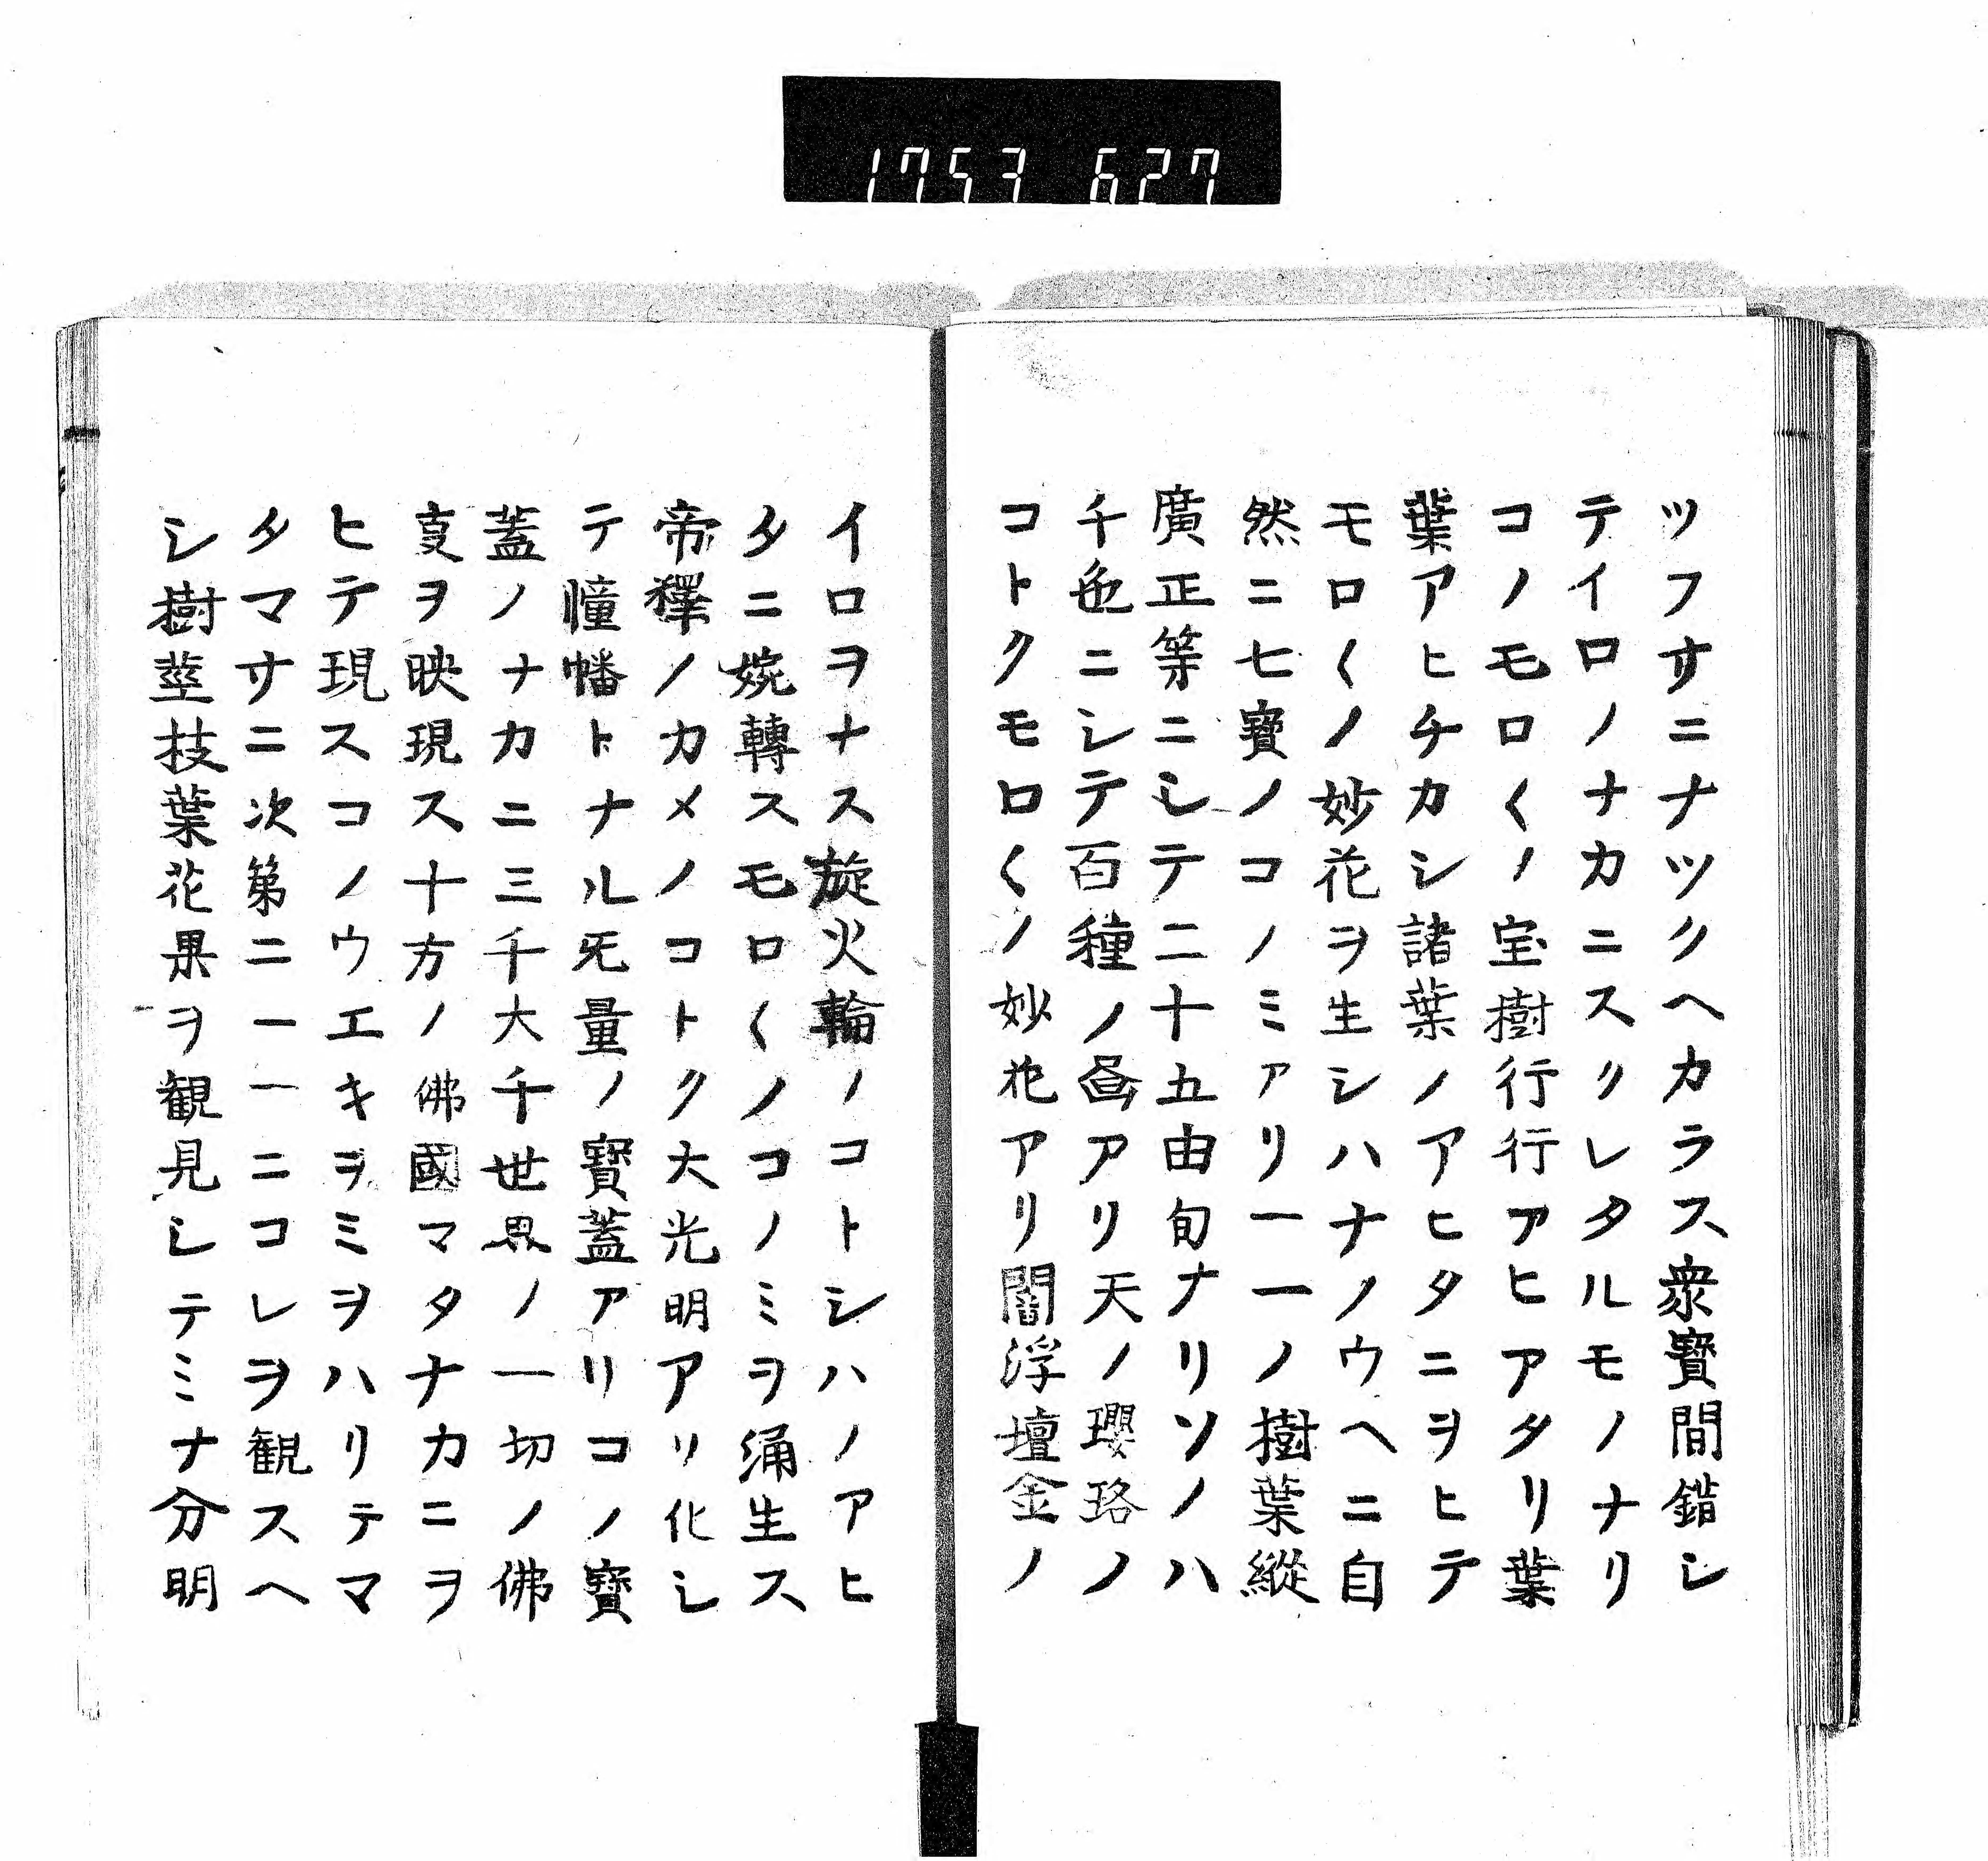 1753 627
ツフサニナツクヘカラス衆寳間錯シ
テイロノナカニスクレタルモノナリ
コノモロ〱ノ宝樹行行アヒアタリ葉
葉アヒチカシ諸葉ノアヒタニヲヒテ
モロ〱ノ妙花ヲ生シハナノウヘニ自
然ニ七寳ノコノミアリ一一ノ樹葉縱
廣正等ニシテ二十五由旬ナリソノハ
千色ニシテ百種ノ畫アリ天ノ瓔珞ノ
コトクモロ〱ノ妙花アリ閻浮壇金ノ
イロヲナス旋火輪ノコトシハノアヒ
タニ婉轉スモロ〱ノコノミヲ涌生ス
帝釋ノカメノコトク大光明アリ化シ
テ幢幡トナル旡量ノ寳蓋アリコノ寳
蓋ノナカニ三千大千世界ノ一切ノ佛
㕝ヲ映現ス十方ノ佛國マタナカニヲ
ヒテ現スコノウエキヲミヲハリテマ
タマサニ次第ニ一一ニコレヲ観スヘ
シ樹莖枝葉花果ヲ観見シテミナ分明